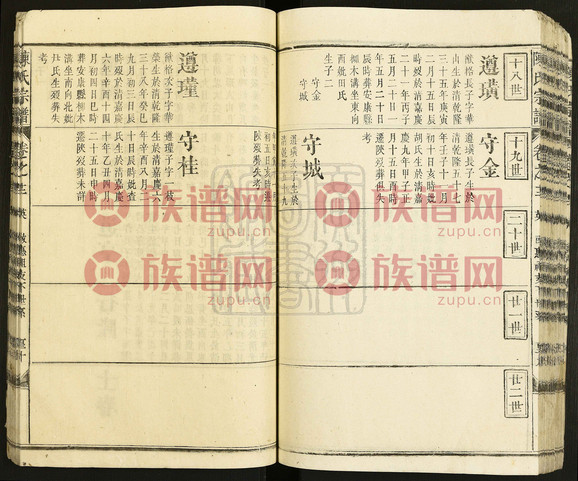 陳氏宗譜
卷之三
十八世
十九世
二十世
廿一世
廿二世
遵璜
猷格長子字華
山生於清乾隆
三十五年庚寅
二月十五日辰
時歿於清嘉慶
二十年丙子
五月二十日
辰時葬安康縣
櫃木溝坐東向
西妣田氏
生子二
守金
守城
守金
遵璜長子生於
清乾隆五十七
年壬子十月
初十日亥時妣
胡氏生於清嘉
慶九年甲子
月癸卯日酉時
遷陝歿葬俱失
考
守城
遵璜次子生於
遵瑾
猷格次子字華
榮生於清乾隆
三十八年癸巳
九月初三日辰
時歿於清嘉慶
六年辛酉四
月初四日巳時
葬安康縣櫃木
溝坐南向北妣
杜氏生歿葬失
考
守桂
遵瑾子字枝
生於清嘉慶六
年辛酉八月二
十日辰時妣查
氏生於清嘉慶
十年乙丑四月
二十五日申時
遷陝歿葬未詳
族谱网
zupu.cn
族谱网
zupu.cn
族谱网
zupu.cn
族谱网
zupu.cn
族谱网
zupu.cn
族谱网
zupu.cn